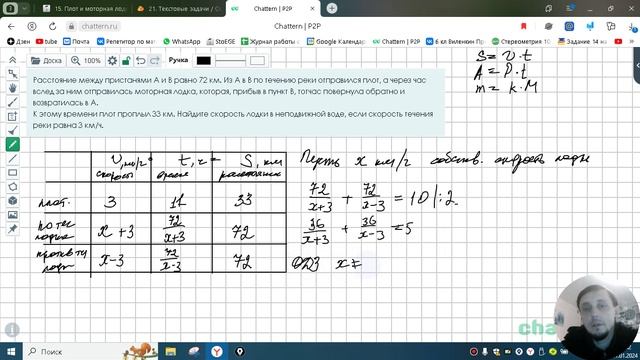 15. Плот и моторная лод
21. Текстовые задачи / С
Chattern | P2P
chattern.ru
Chattern | P2P
Дзен
Почта
YouTube
Репетитор по мат
WhatsApp
StoEGE
Журнал работы
Геометрия
Стереометрия
Задание 14
Доска
100%
Ручка
S = υ · t
A = P · t
m = k · M
Расстояние между пристанями А и В равно 72 км. Из А в В по течению реки отправился плот, а через час
вслед за ним отправилась моторная лодка, которая, прибыв в пункт В, тотчас повернула обратно и
возвратилась в А.
К этому времени плот проплыл 33 км. Найдите скорость лодки в неподвижной воде, если скорость течения
реки равна 3 км/ч.
υ, км/ч · t, ч = S, км
скорость время расстояние
плот. 3 11 33
по теч лодка x + 3 72/(x+3) 72
против теч лодк x−3 72/(x−3) 72
Пусть x км/ч собств. скорость лодки
72/(x+3) + 72/(x−3) = 10 |:2
36/(x+3) + 36/(x−3) = 5
ОДЗ x ≠
Поиск